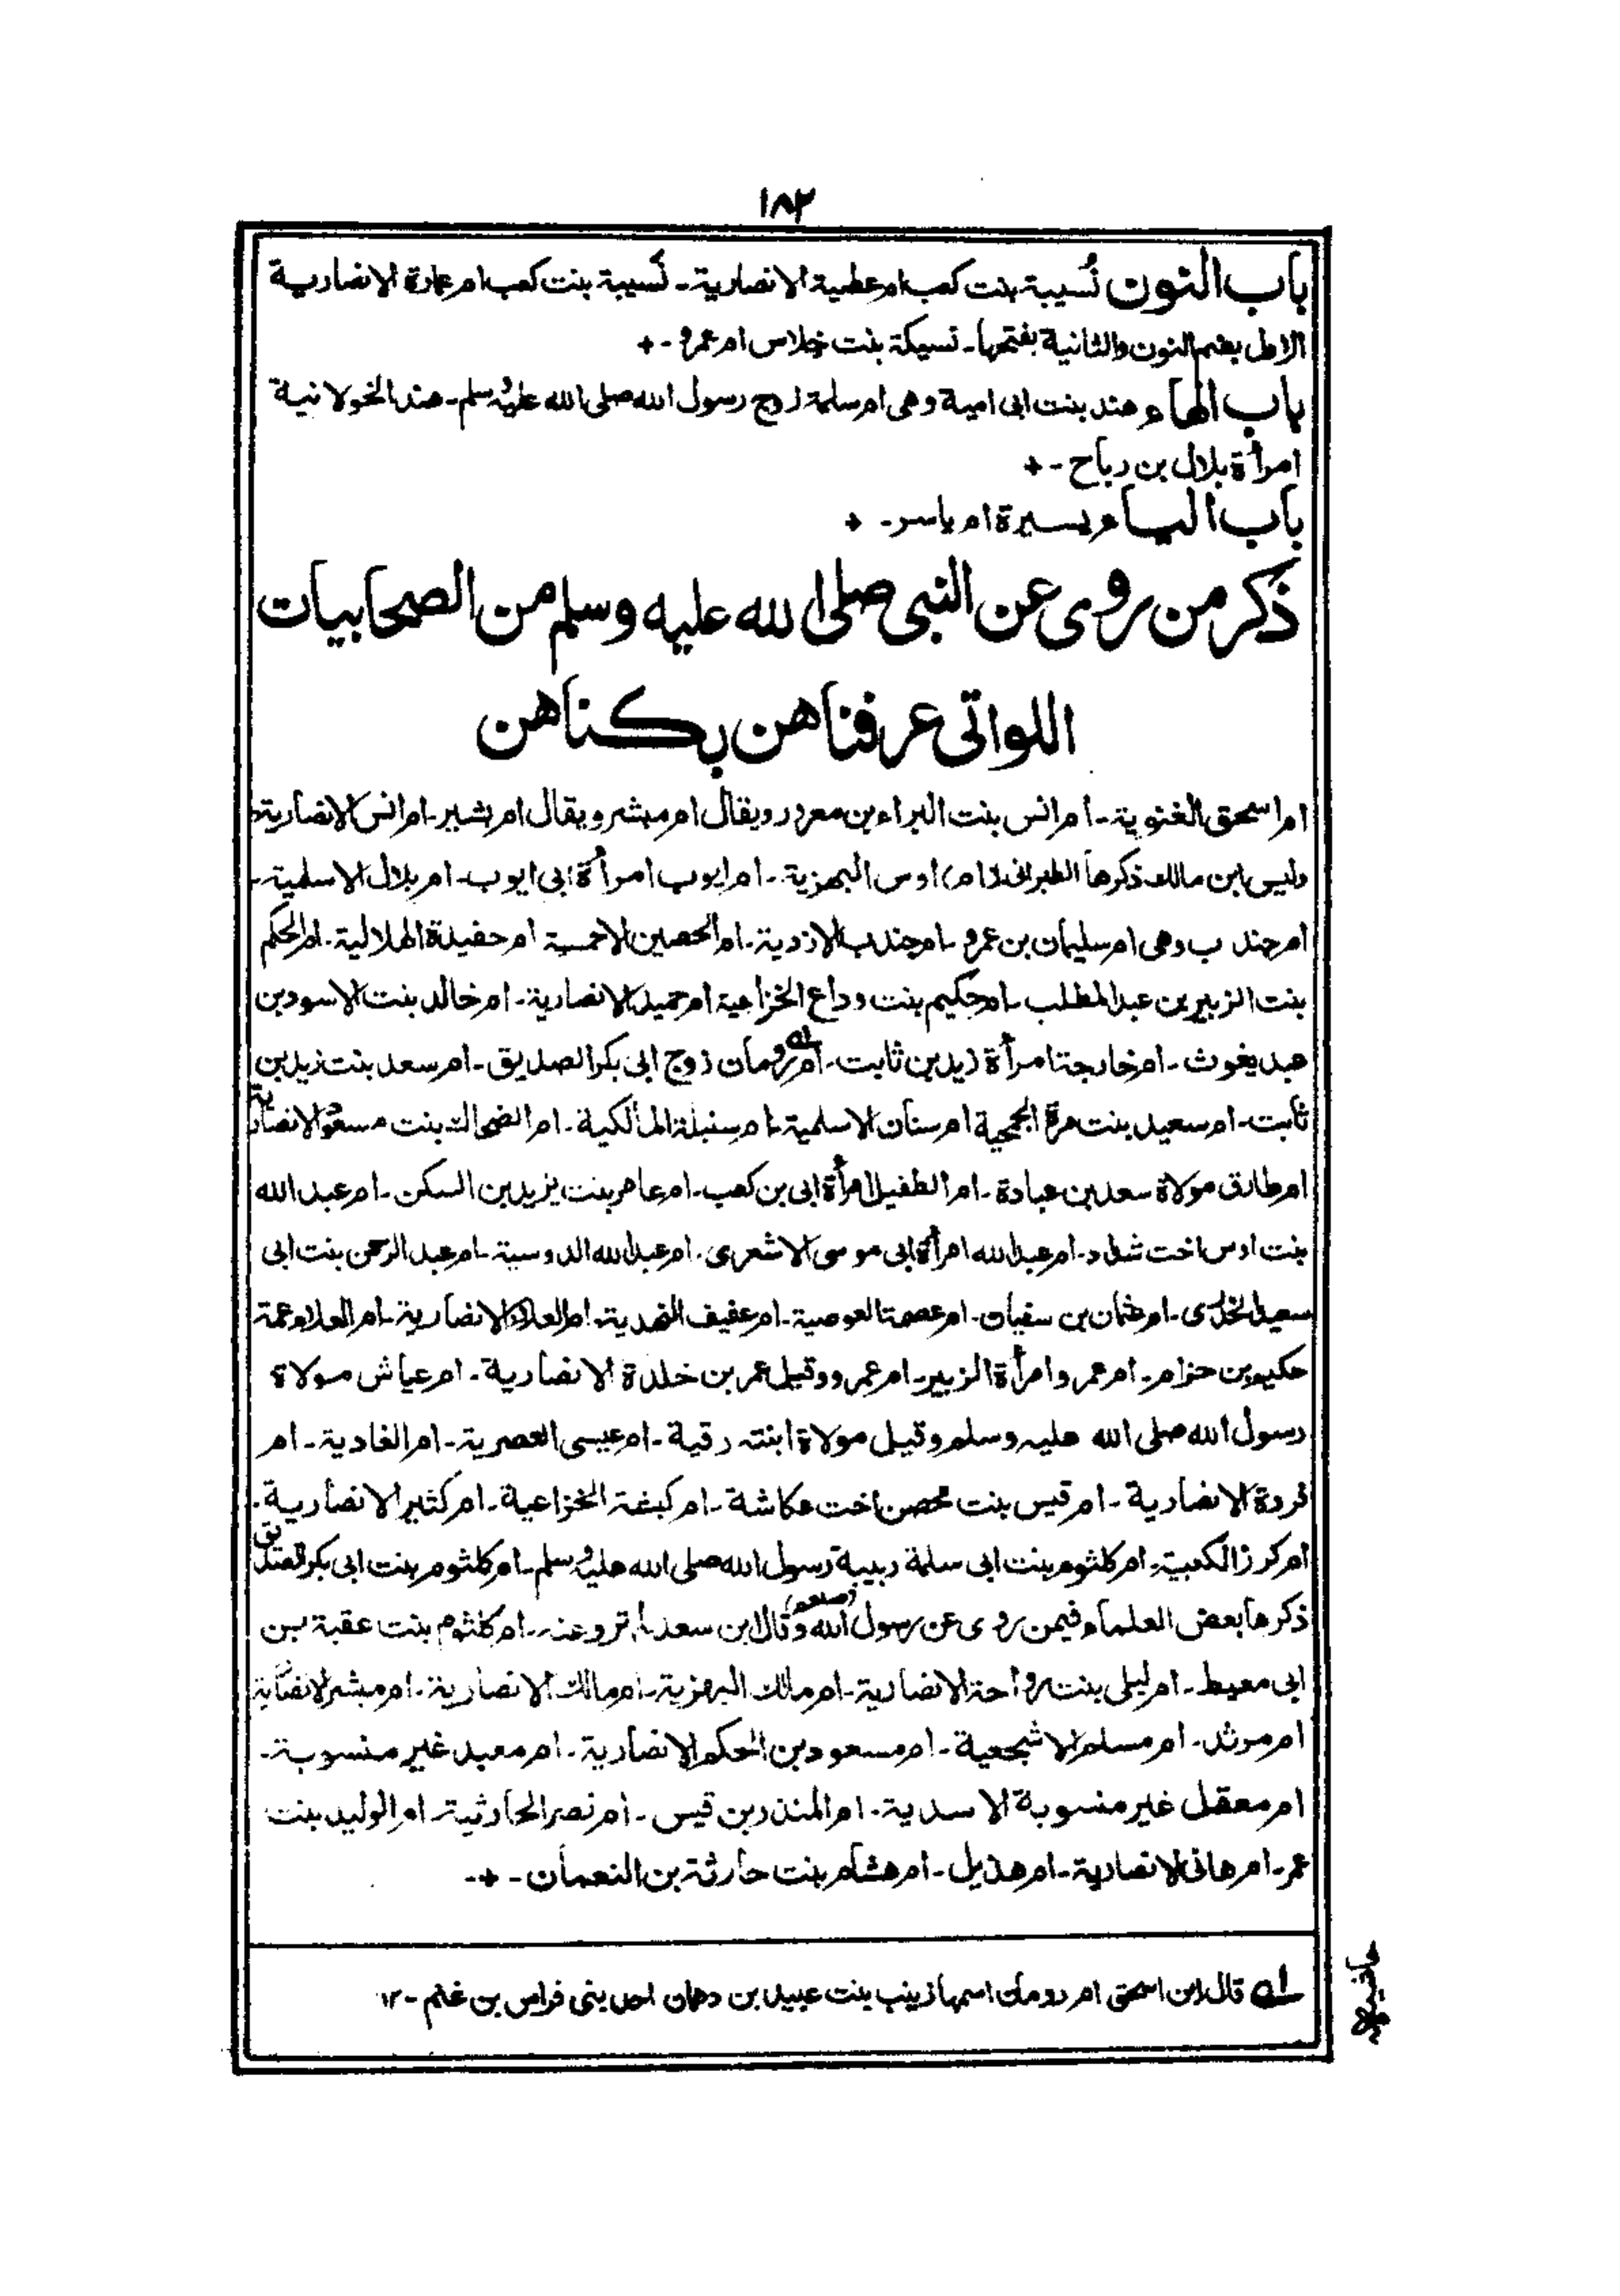 ١٨٢
باب النون نُسيبة بنت كعب ام عطية الانصارية - نَسيبة بنت كعب ام عمارة الانصارية
الاول بضم النون والثانية بفتحها - نسيكة بنت خلاس ام عمرو - +
باب الهاء هند بنت ابى امية وهى ام سلمة زوج رسول الله صلى الله عليه وسلم - هند الخولانية
امرأة بلال بن رباح - +
باب الياء يسيرة ام ياسر - +
ذكر من روى عن النبى صلى الله عليه وسلم من الصحابيات
اللواتى عرفناهن بكناهن
ام اسحق الغنوية - ام انس بنت البراء بن معرور ويقال ام مبشر ويقال ام بشير - ام انس الانصارية
وليس ابن مالك ذكرها الطبرانى (ام) اوس البهزية - ام ايوب امرأة ابى ايوب - ام بلال الاسلمية -
ام جندب وهى ام سليمان بن عمرو - ام جندب الازدية - ام الحصين الاحمسية ام حفيدة الهلالية - ام الحكم
بنت الزبير بن عبد المطلب - ام حكيم بنت وداع الخزاعية ام حميد الانصارية - ام خالد بنت الاسود بن
عبد يغوث - ام خارجة امرأة زيد بن ثابت - ام رومان له زوج ابى بكر الصديق - ام سعد بنت زيد بن
ثابت - ام سعيد بنت مرة الجمحية ام سنان الاسلمية - ام سنبلة المالكية - ام الضحاك بنت مسعود الانصارية
ام طارق مولاة سعد بن عبادة - ام الطفيل امرأة ابى بن كعب - ام عامر بنت يزيد بن السكن - ام عبد الله
بنت اوس اخت شداد - ام عبد الله امرأة ابى موسى الاشعرى - ام عبد الله الدوسية - ام عبد الرحمن بنت ابى
سعيد الخدرى - ام عثمان بن سفيان - ام عصمة العوصية - ام عفيف النهدية - ام العلاء الانصارية - ام العلاء عمة
حكيم بن حزام - ام عمرو امرأة الزبير - ام عمرو وقيل عمر بن خلدة الانصارية - ام عياش مولاة
رسول الله صلى الله عليه وسلم وقيل مولاة ابنته رقية - ام عيسى العصرية - ام الغادية - ام
فروة الانصارية - ام قيس بنت محصن اخت عكاشة - ام كبشة الخزاعية - ام كثير الانصارية -
ام كرز الكعبية - ام كلثوم بنت ابى سلمة ربيبة رسول الله صلى الله عليه وسلم - ام كلثوم بنت ابى بكر الصديق
ذكرها بعض العلماء فيمن روى عن رسول الله (صلعم) وقال ابن سعد لم ترو عنه - ام كلثوم بنت عقبة بن
ابى معيط - ام ليلى بنت رواحة الانصارية - ام مالك البهزية - ام مالك الانصارية - ام مبشر الانصارية
ام مرثد - ام مسلم الاشجعية - ام مسعود بن الحكم الانصارية - ام معبد غير منسوبة -
ام معقل غير منسوبة الاسدية - ام المنذر بن قيس - ام نصر الحارثية - ام الوليد بنت
عمر - ام هانى الانصارية - ام هذيل - ام هشام بنت حارثة بن النعمان - + -
له قال ابن اسحق ام رومان اسمها زينب بنت عبيد بن دهمان احد بنى فراس بن غنم - ١٢
حاشيه